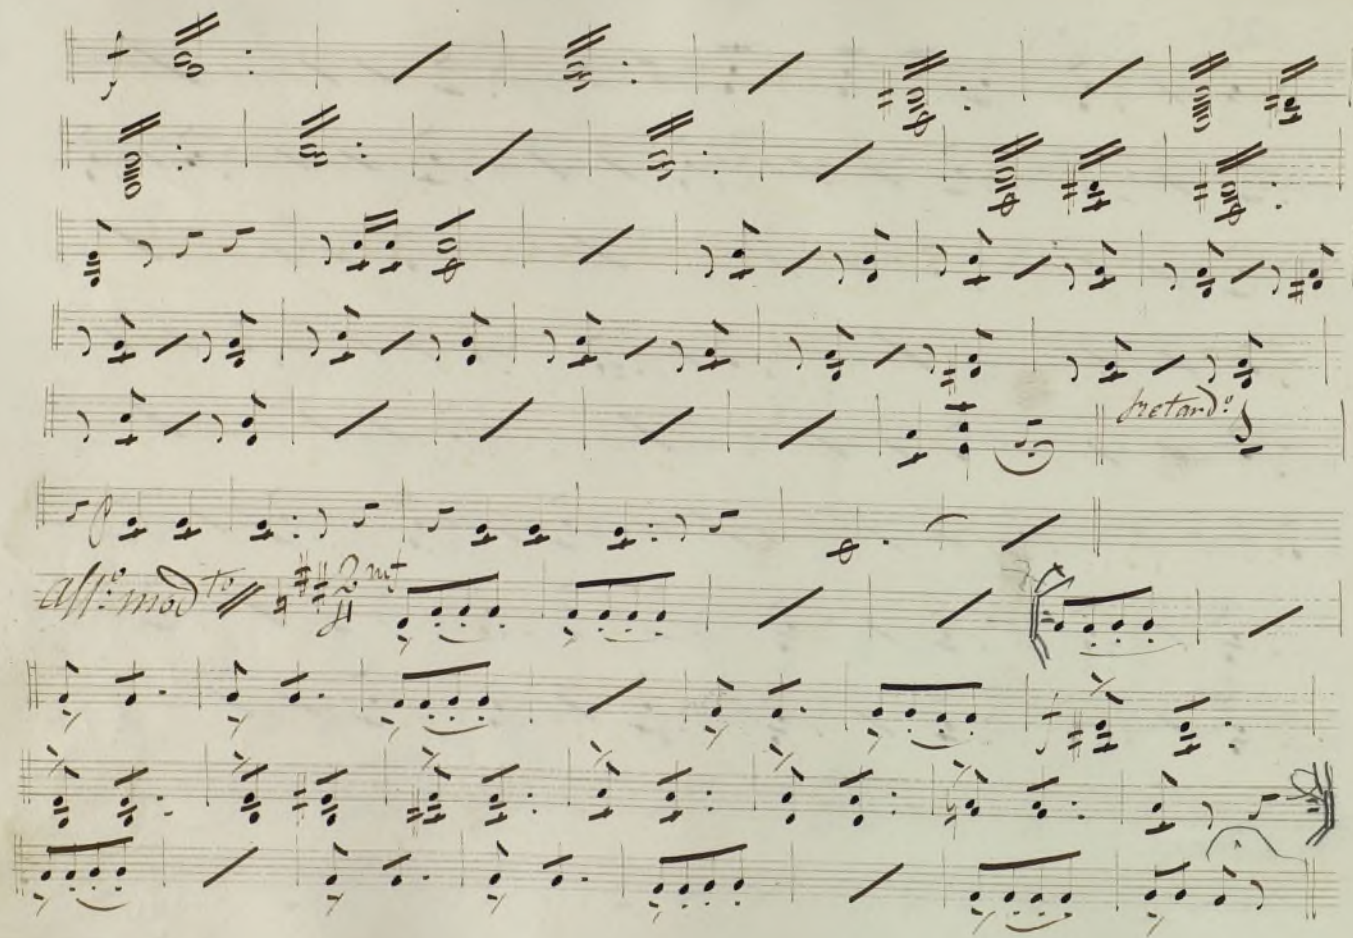 f
retard:º
All:º mod.to 2 mt
f